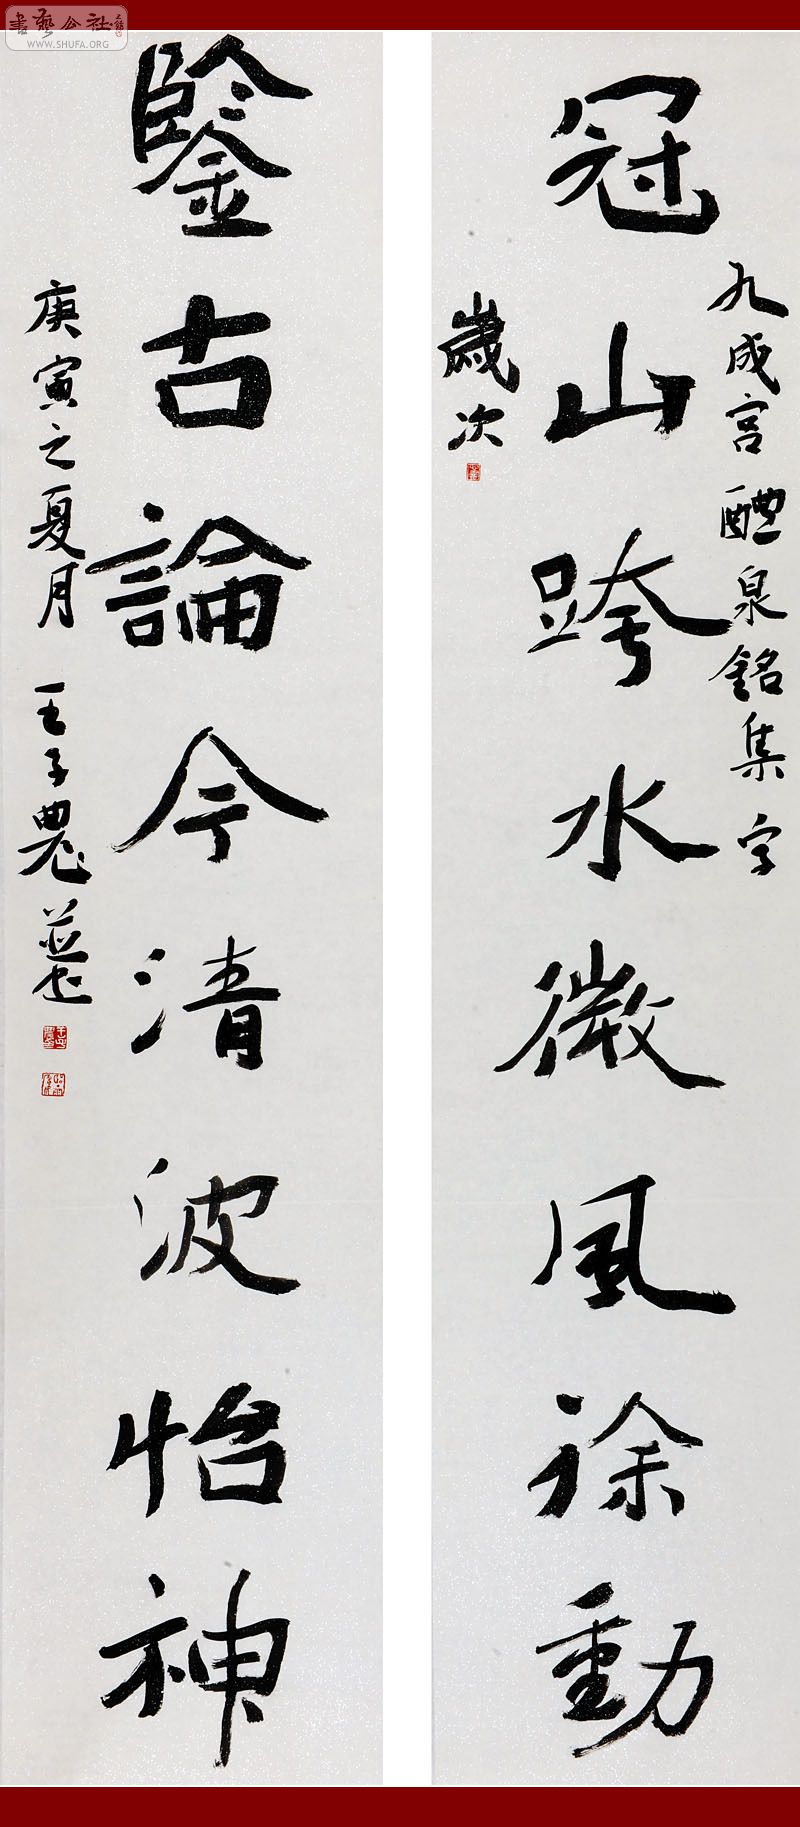 冠山跨水微風徐動
九成宮醴泉銘集字
歲次
鑒古論今清波怡神
庚寅之夏月 王子農並書
書藝公社
WWW.SHUFA.ORG